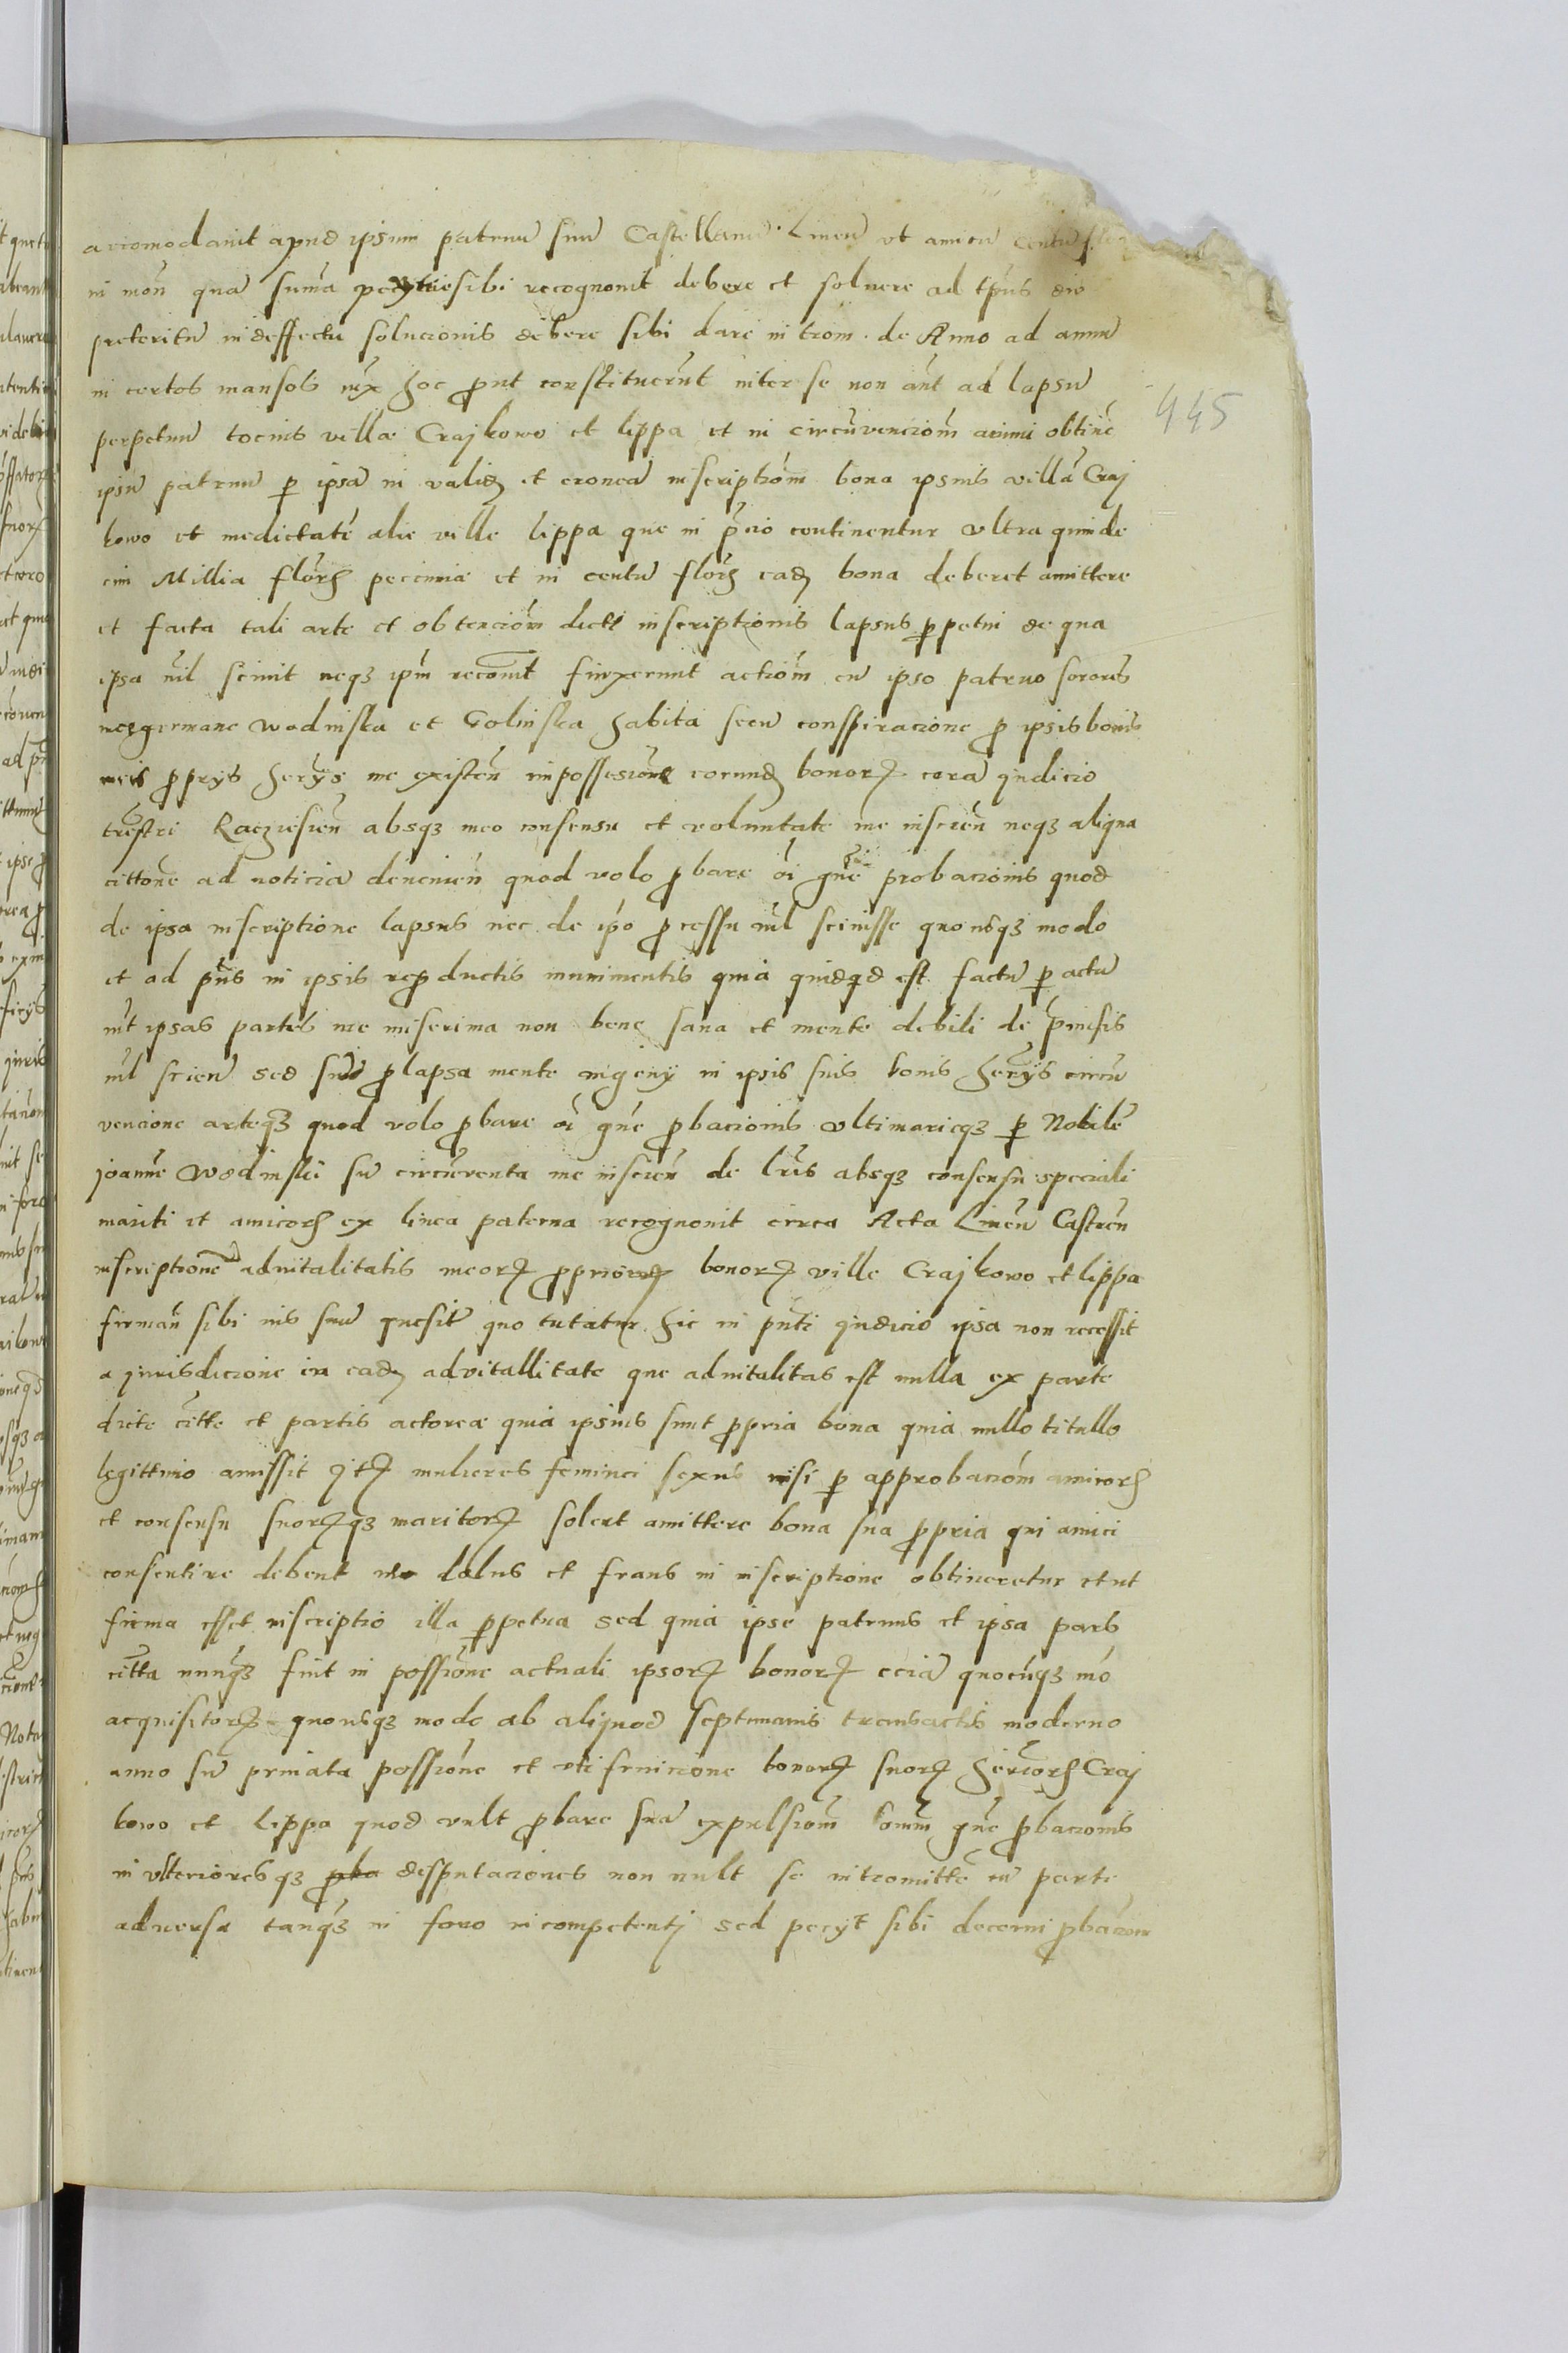 accomodavit apud ipsum patruu suu Castellanu Lineñ ut amicu centu flor
in moñ qua suma pecunie sibi recognovit debere et solvere ad tpus
preteritu in deffectu solucionis debere sibi dare in trom de Anno ad annu
in certos mansos iux hoc put constituerut inter se non ant ad lapsu
perpetuu tocius villae Crajkowo et lippa et in circuvenciom animi obtine
ipsu patruu p ipsa in valid et eronea inscriptiom bona ipsius villa Craj
kowo et medietate alie ville lippa que in continentur ultra quinde
cim Millia florz pecuniae et in centu florz ead bona deberet amittere
et facta tali arte et obtenciom dicte inscriptionis lapsus ppetui de qua
ipsa nil scivit neqz ipm recovit finxerunt actiom cu ipso patruo sorores
mee germane wodinska et Golinska habita secu conspiracione p ipsis bonis
meis pprys herys me existen in possesione eorund bonorz cora judicio
trestri Raczuesien absqz meo consensu et voluntate me inscien neqz aliqua
cittone ad noticia devenien quod volo pbare oi gne probacionis quod
de ipsa inscriptione lapsus nec de ipo pcessu nil scivisse quovisqz modo
et ad pns in ipsis repductis munimentis quia quidqd est factu p actu
int ipsas partes me miserima non bene sana et mente debili de pmisis
nil scien sed plapsa mente ingeny in ipsis suis bonis herys circu
vencione arteqz quod volo pbare oi gne pbacionis ultimarieqz p Nobile
joanne Wodinski su circuventa me inscien de lris absqz consensu speciali
mariti et amicorz ex linea paterna recognovit circa Acta Lineñ Castreñ
inscriptione advitalitatis meorz ppriorz bonorz ville Crajkowo et lippa
firmañ sibi ius suu quesit quo tutatur hic in pnti judicio ipsa non recessit
a jurisdicione in ead advitallitate que advitalitas est nulla ex parte
dicte citte et partis actoreae quia ipsius sunt ppria bona quia nullo titullo
legittimo amissit mulieres feminei sexus nisi p approbaciom amicorz
et consensu suorzqz maritorz solent amittere bona sua ppria qui amici
consentire debent ne dolus et fraus in inscriptione obtineretur et ut
firma esset inscriptio illa ppetua sed quia ipse patruus et ipsa pars
citta nunqz fuit in possione actuali ipsorz bonorz ecia quocuqz mo
acquisitorz quovisqz modo ab aliquod septimanis transactis moderno
anno su privata possione et uti fruicione bonorz suorz heriorz Craj
kowo et lippa quod vult pbare sua expulsiom gne pbacionis
in ulterioresqz disputaciones non vult se intromitte cu parte
adversa tanqz in foro incompetentj sed pecyt sibi decerni pbaciom
445